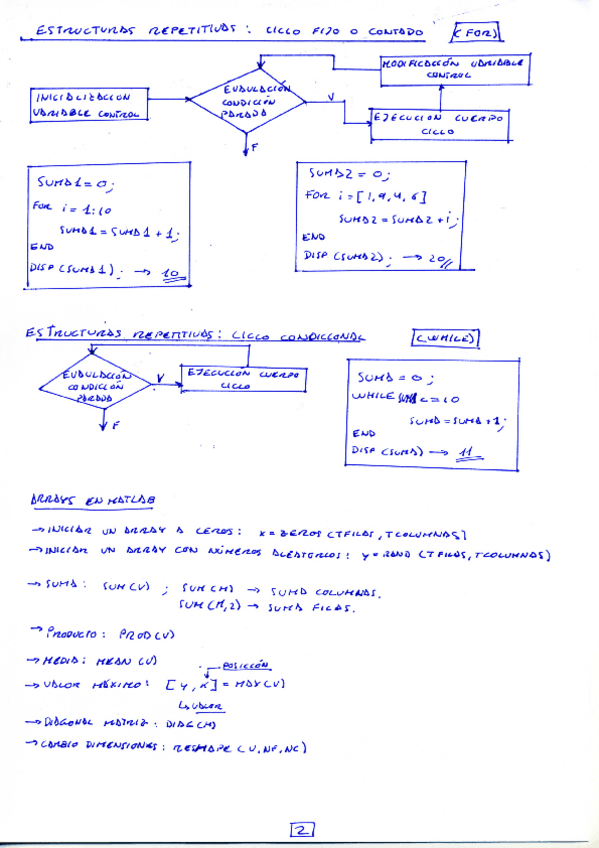 ESTRUCTURAS REPETITIVAS: CICLO FIJO O CONTADO (FOR)
INICIALIZACION
VARIABLE CONTROL
EVALUACIÓN
CONDICIÓN
PARADA
V
F
MODIFICACIÓN VARIABLE
CONTROL
EJECUCIÓN CUERPO
CICLO
SUMA1=0;
FOR i=1:10
SUMA1=SUMA1+1;
END
DISP(SUMA1); → 10
SUMA2=0;
FOR i=[1,9,4,6]
SUMA2=SUMA2+i;
END
DISP(SUMA2); → 20
ESTRUCTURAS REPETITIVAS: CICLO CONDICIONAL (WHILE)
EVALUACIÓN
CONDICIÓN
PARADA
V
F
EJECUCIÓN CUERPO
CICLO
SUMA=0;
WHILE SUMA<=10
SUMA=SUMA+1;
END
DISP(SUMA) → 11
ARRAYS EN MATLAB
→ INICIAR UN ARRAY A CEROS: X=ZEROS(TFILAS,TCOLUMNAS)
→ INICIAR UN ARRAY CON NÚMEROS ALEATORIOS: y=RAND(TFILAS,TCOLUMNAS)
→ SUMA: SUM(V); SUM(M) → SUMA COLUMNAS.
SUM(M,2) → SUMA FILAS.
→ PRODUCTO: PROD(V)
→ MEDIA: MEAN(V)
POSICIÓN
→ VALOR MÁXIMO: [Y,X]=MAX(V)
VALOR
→ DIAGONAL MATRIZ: DIAG(M)
→ CAMBIO DIMENSIONES: RESHAPE(V,NF,NC)
2